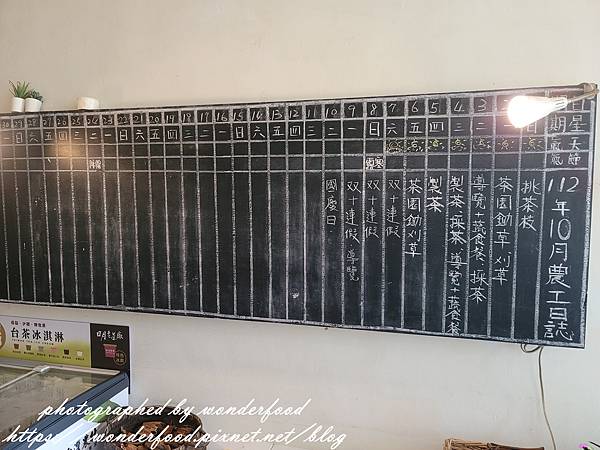 112年10月農工日誌
日期
星期
天氣
節氣
日
挑茶枝
2
一
茶園鋤草刈草
3
二
導覽+蔬食餐 採茶
4
三
製茶 採茶 導覽+蔬食餐
5
四
製茶
6
五
茶園鋤刈草
7
六
双十連假
8
日
寒露
双十連假
9
一
双十連假 導覽
10
二
國慶日
11
三
12
四
13
五
14
六
15
日
16
一
17
二
18
三
19
四
20
五
21
六
22
日
23
一
24
二
霜降
25
三
26
四
27
五
28
六
29
日
30
台茶冰淇淋
photographed by wonderfood
https://wonderfood.pixnet.net/blog